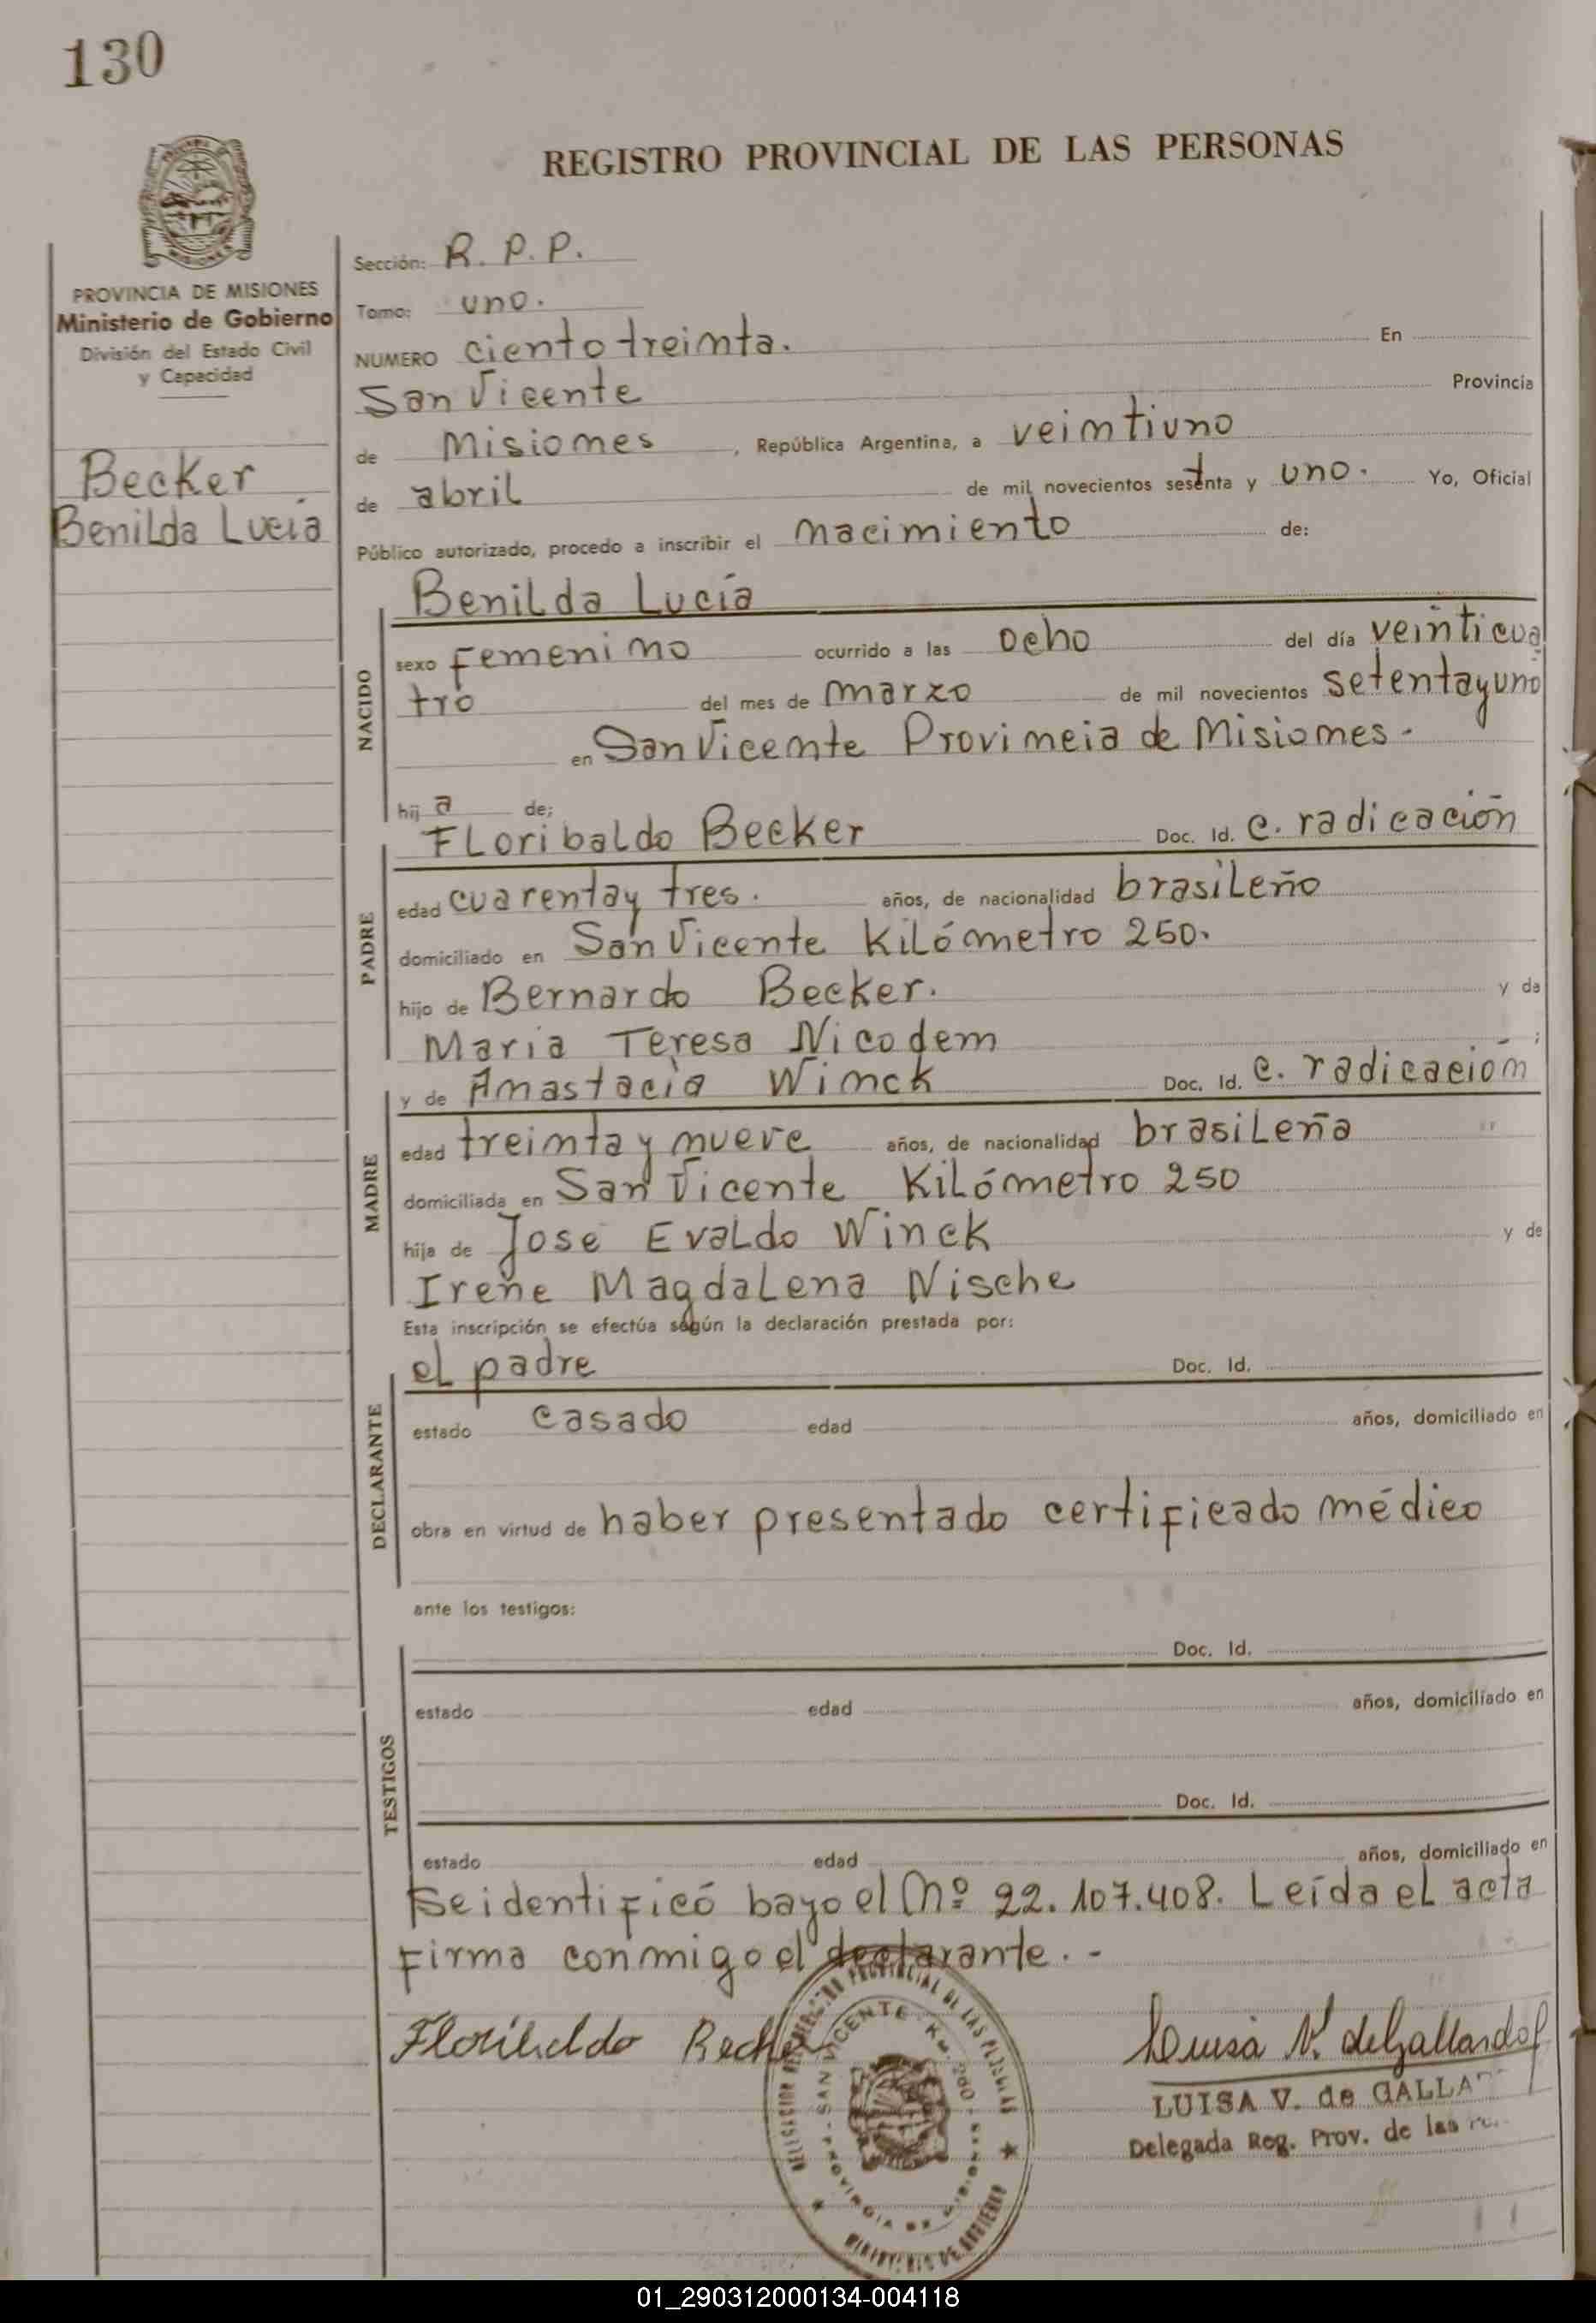 130
REGISTRO PROVINCIAL DE LAS PERSONAS
MISIONES
PROVINCIA DE MISIONES
Ministerio de Gobierno
División del Estado Civil
y Capacidad
Becker
Benilda Lucía
Sección: R. P. P.
Tomo: uno.
NUMERO ciento treinta. En
San Vicente Provincia
de Misiones, República Argentina, a veintiuno
de abril de mil novecientos setenta y uno. Yo, Oficial
Público autorizado, procedo a inscribir el nacimiento de:
NACIDO
Benilda Lucía
sexo femenino ocurrido a las ocho del día veinticua
tro del mes de marzo de mil novecientos setenta y uno
en San Vicente Provincia de Misiones.
hij a de;
PADRE
Floribaldo Becker Doc. Id. C. radicación
edad cuarenta y tres. años, de nacionalidad brasileño
domiciliado en San Vicente Kilómetro 250.
hijo de Bernardo Becker. y de
Maria Teresa Nicodem ;
MADRE
y de Anastacia Winck Doc. Id. C. radicación
edad treinta y nueve años, de nacionalidad brasileña
domiciliada en San Vicente Kilómetro 250
hija de José Evaldo Winck y de
Irene Magdalena Nische
Esta inscripción se efectúa según la declaración prestada por:
DECLARANTE
el padre Doc. Id.
estado casado edad años, domiciliado en
obra en virtud de haber presentado certificado médico
ante los testigos:
TESTIGOS
Doc. Id.
estado edad años, domiciliado en
Doc. Id.
estado edad años, domiciliado en
Se identificó bayo el Nº 22.107.408. Leída el acta
firma conmigo el declarante. -
Floribaldo Becker
Luisa V. de Gallardo
LUISA V. de GALLA
Delegada Reg. Prov. de las
PROVINCIAL DE LAS PERSONAS
SAN VICENTE - Km.
PROVINCIA DE MISIONES
MINISTERIO DE GOBIERNO
01_290312000134-004118